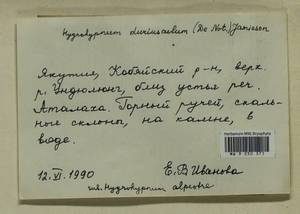 Hygrohypnum duriusculum (De Not.) Jamieson
Якутия, Кобяйский р-н, верх.
р. Ундюлюнг, близ устья реч.
Аталаха. Горный ручей, скаль-
ные склоны, на камне, в
воде.
12.VI.1990
Е.В Иванова
Hygrohypnum alpestre